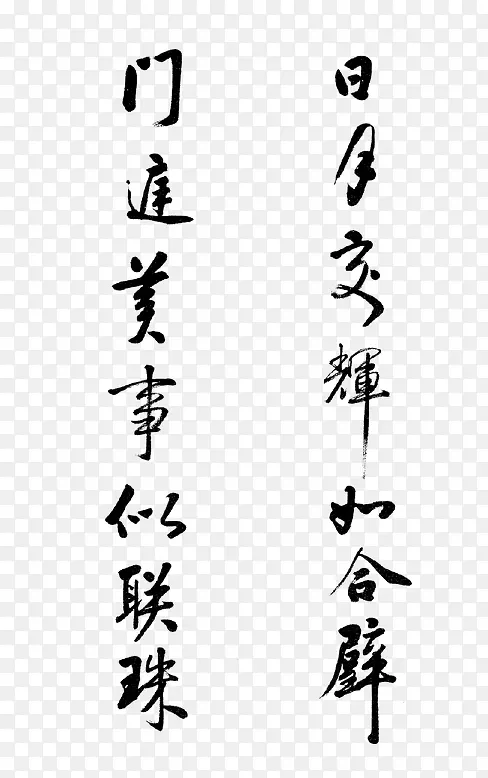 日月交輝如合璧
門庭美事似联珠